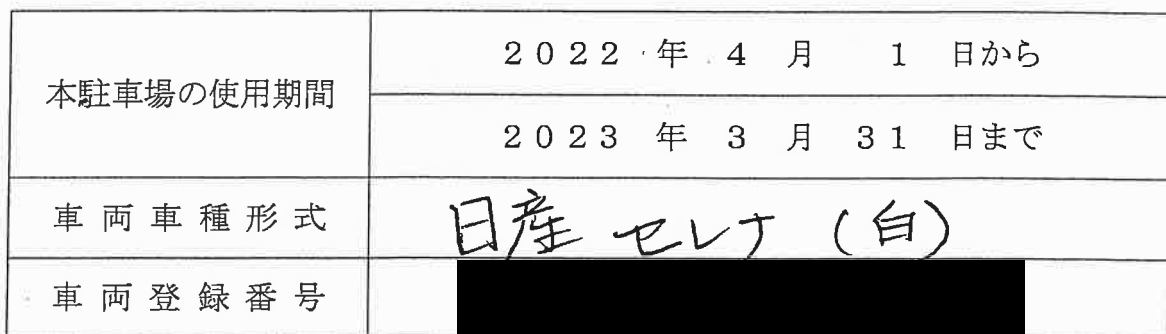 本駐車場の使用期間
2022年 4月 1日から
2023年 3月 31日まで
車両車種形式
日産 セレナ (白)
車両登録番号